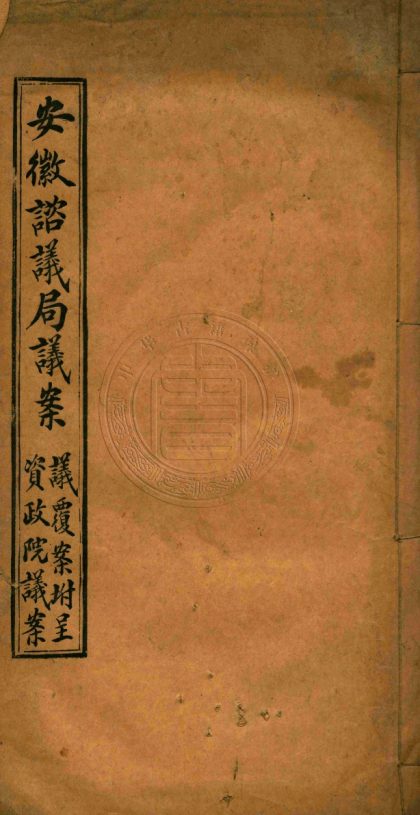 安徽諮議局議案
議覆案坿呈
資政院議案